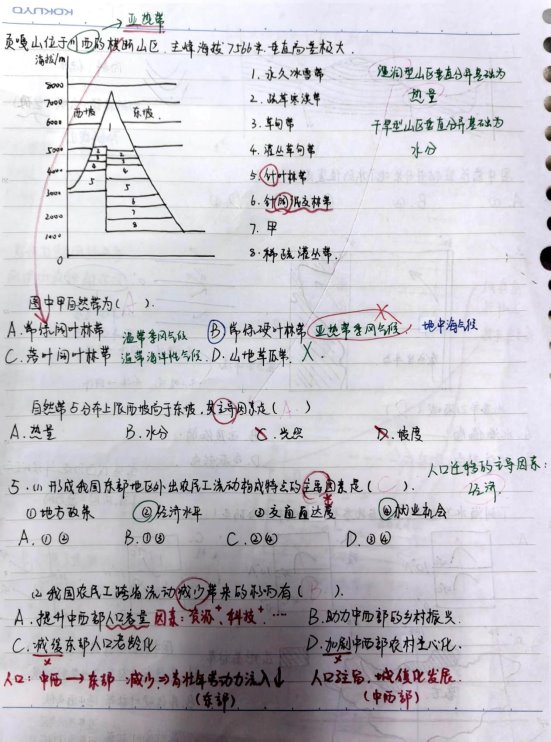 KOKUYO
亚热带
贡嘎山位于川西的横断山区,主峰海拔7556米,垂直高差极大.
海拔/m
8000
7000
6000
5000
4000
3000
2000
1000
0
西坡
东坡
1
2
3
4
5
2
3
4
5
6
7
8
1. 永久冰雪带
2. 
3. 草甸带
4. 灌丛草甸带
5. 针叶林带
6. 针阔混交林带
7. 甲
8. 稀疏灌丛带.
湿润型山区垂直分异基础为
热量
干旱型山区垂直分异基础为
水分
图中甲自然带为( ).
A. 常绿阔叶林带 温带季风气候 B. 常绿硬叶林带 亚热带季风气候. 地中海气候
C. 落叶阔叶林带 温带海洋性气候. D. 山地草原带. X
自然带5分布上限西坡高于东坡,其主导因素是( A )
A. 热量 B. 水分 C. 光照 D. 坡度
人口迁移的主导因素:
经济.
5. (1) 形成我国东部地区外出农民工流动构成特点的主要因素是( C ).
①地方政策 ②经济水平 ③交通通达度 ④就业机会
A. ①② B. ①③ C. ②④ D. ③④
(2) 我国农民工跨省流动减少带来的影响有( B ).
A. 提升中西部人口容量 因素:资源+,科技+,…… B. 助力中西部的乡村振兴.
C. 减缓东部人口老龄化 D. 加剧中西部农村空心化.
人口:中西→东部 减少⇒青壮年劳动力流入↓ 人口驻留,城镇化发展.
(东部) (中西部)